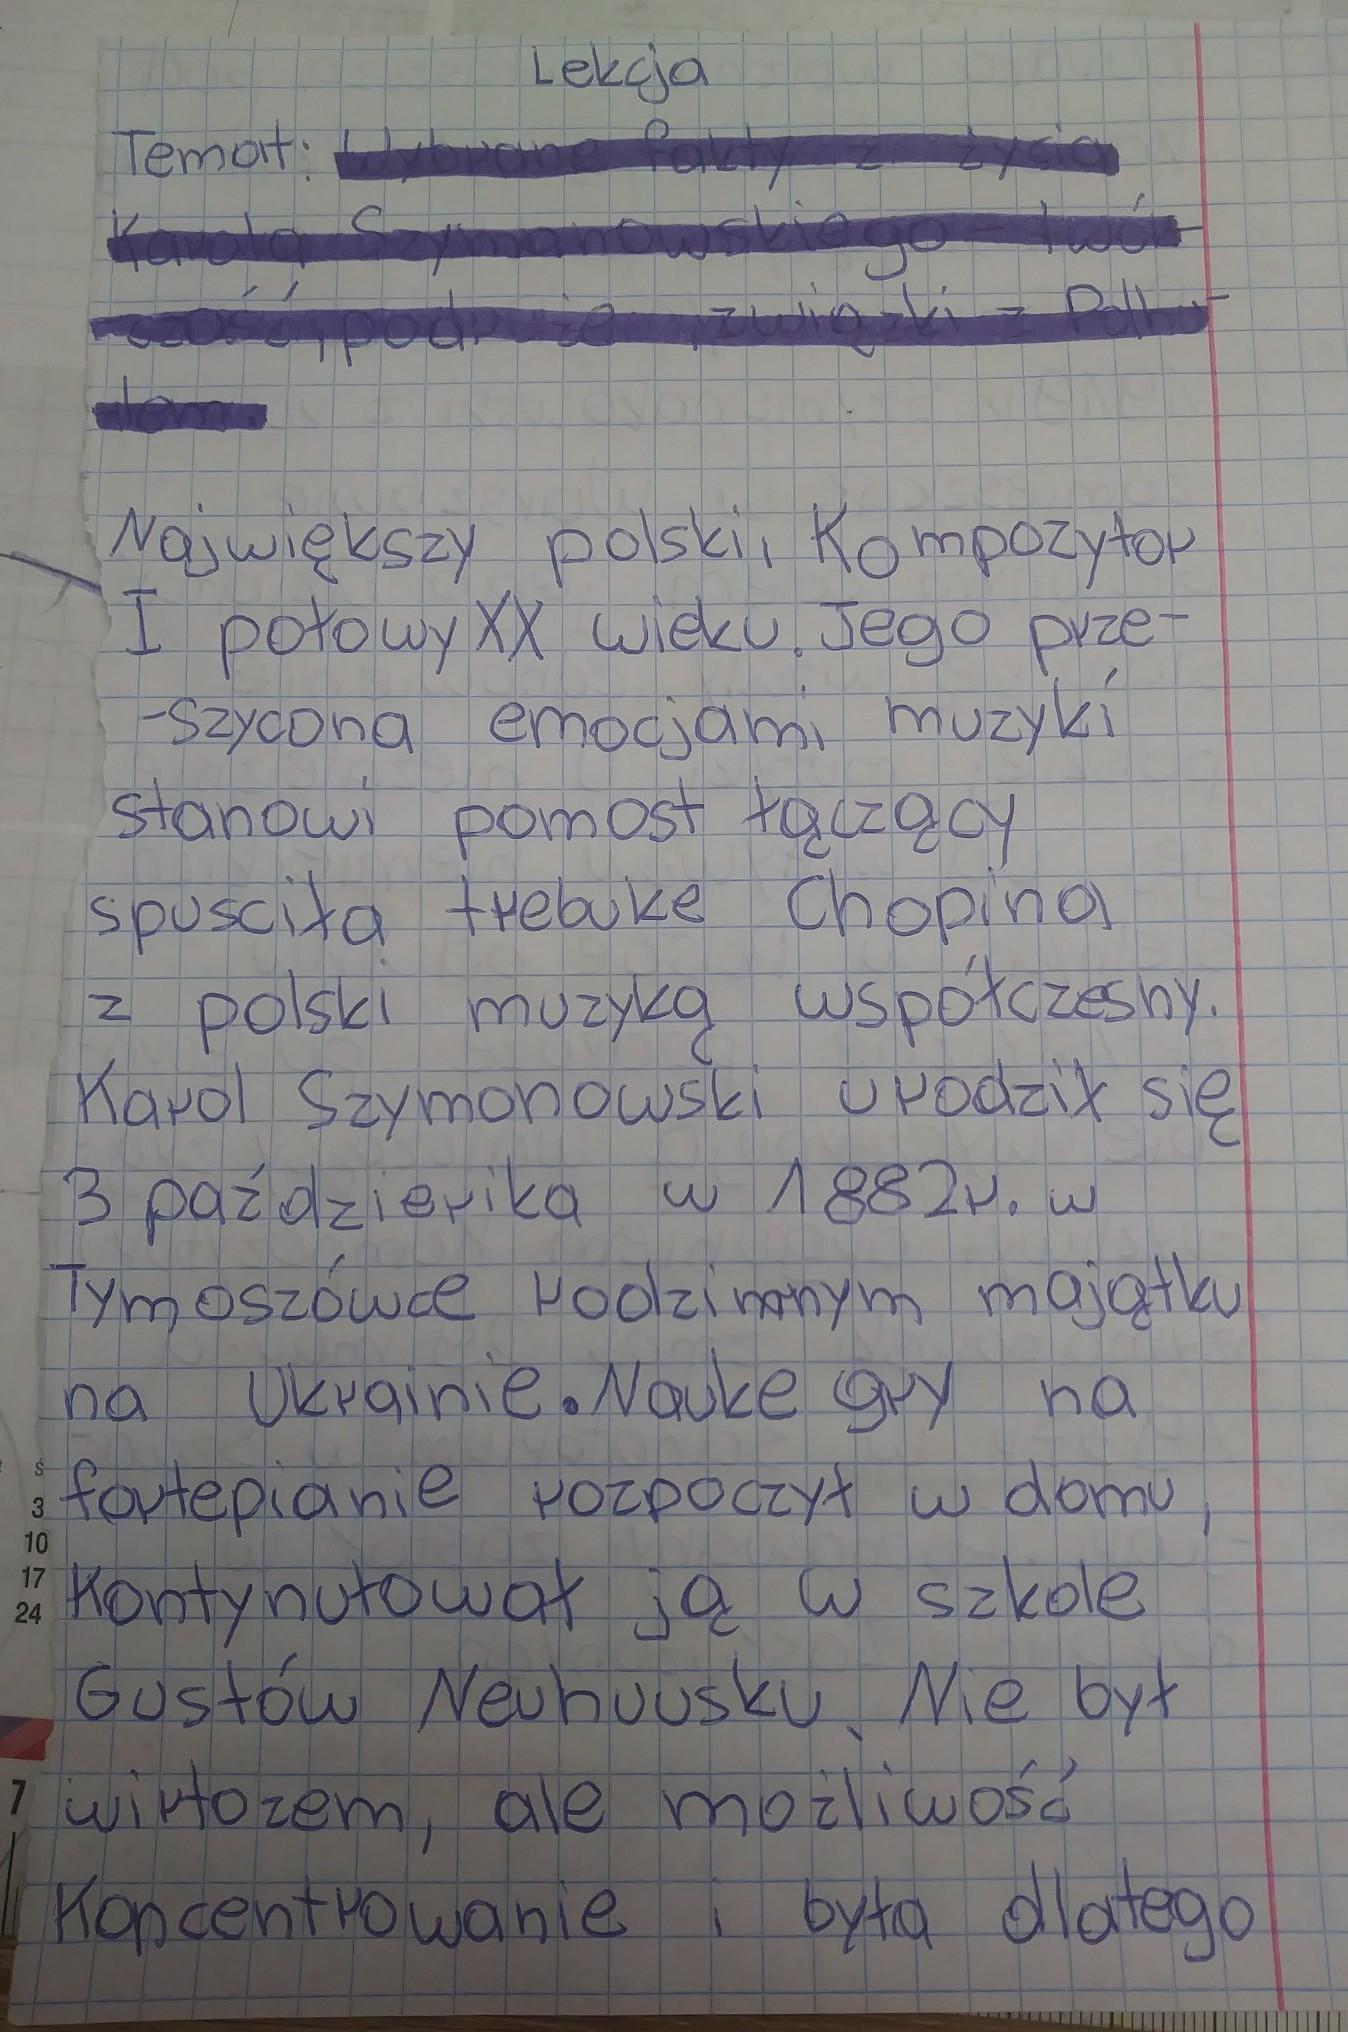 Lekcja
Temat: Wybrane fakty z życia
Karola Szymanowskiego - twór-
czość, podróże, związki z Podha-
lem.
Największy polski, Kompozytor
I połowy XX wieku. Jego prze-
-szycona emocjami muzyki
stanowi pomost łączący
spusciła trebuke Chopina
z polski muzyką współczesny.
Karol Szymonowski urodził się
3 paździerika w 1882r. w
Tymoszówce rodzimnym majątku
na Ukrainie. Nauke gry na
fortepianie rozpoczył w domu,
Kontynutował ją w szkole
Gustów Neuhuusku. Nie był
wirtozem, ale możliwość
Koncentrowanie i była dlatego
ś
3
10
17
24
7